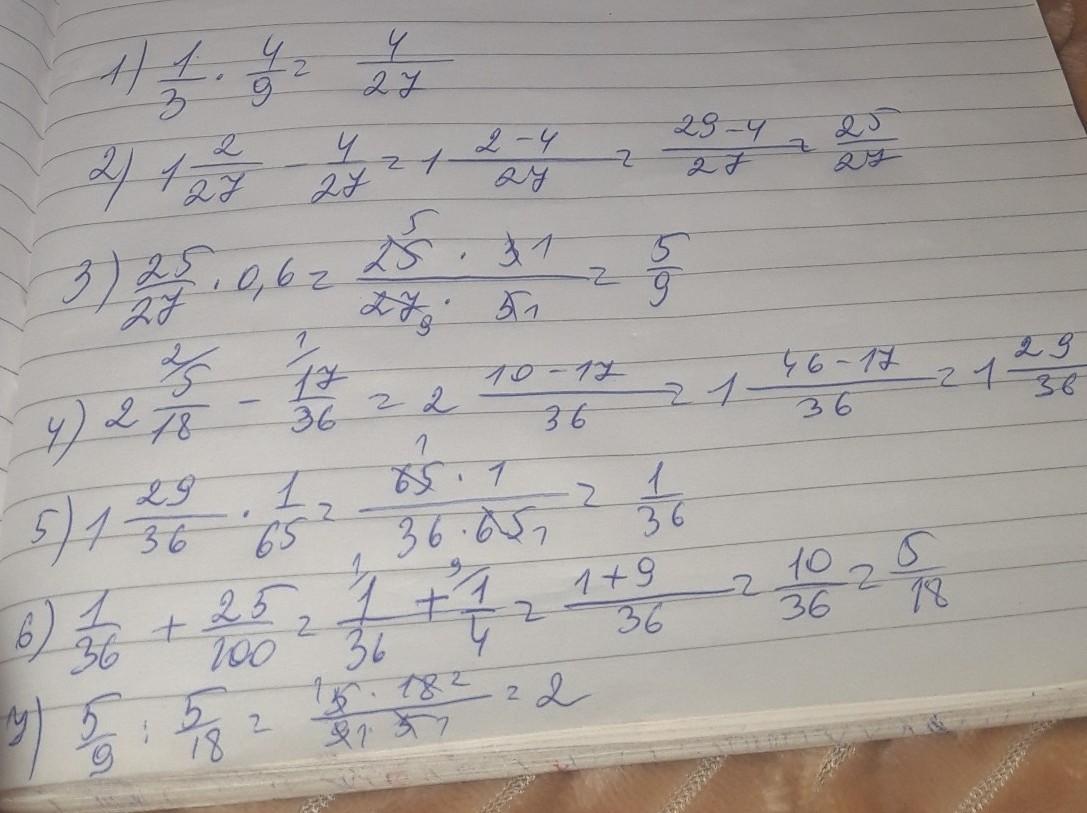 1) 1/3 · 4/9 = 4/27
2) 1 2/27 - 4/27 = 1 (2-4)/27 = (29-4)/27 = 25/27
3) 25/27 · 0,6 = (25 5 · 3 1)/(27 9 · 5 1) = 5/9
4) 2 2/ 5/18 - 1/ 17/36 = 2 (10-17)/36 = 1 (46-17)/36 = 1 29/36
5) 1 29/36 · 1/65 = (65 1 · 1)/(36 · 65 1) = 1/36
6) 1/36 + 25/100 = 1/ 1/36 + 9/ 1/4 = (1+9)/36 = 10/36 = 5/18
7) 5/9 : 5/18 = (1 5 · 18 2)/(9 1 · 5 1) = 2